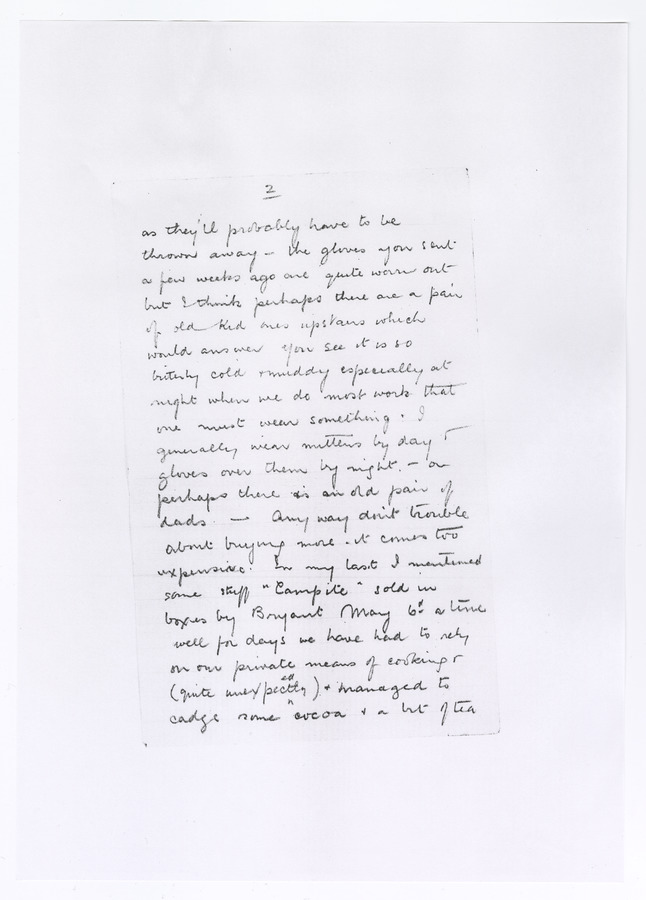 2
as they'll probably have to be
thrown away – the gloves you sent
a few weeks ago are quite worn out
but I think perhaps there are a pair
of old Kid ones upstairs which
would answer you see it is so
bitterly cold & muddy especially at
night when we do most work that
one must wear something. I
generally wear mittens by day &
gloves over them by night. – or
perhaps there is an old pair of
dads. — Any way don't trouble
about buying more – it comes too
expensive. In my last I mentioned
some stuff "Campite" sold in
boxes by Bryant May 6d a time
well for days we have had to rely
on our private means of cooking &
(quite unexpectedly) & managed to
cadge some cocoa & a bit of tea